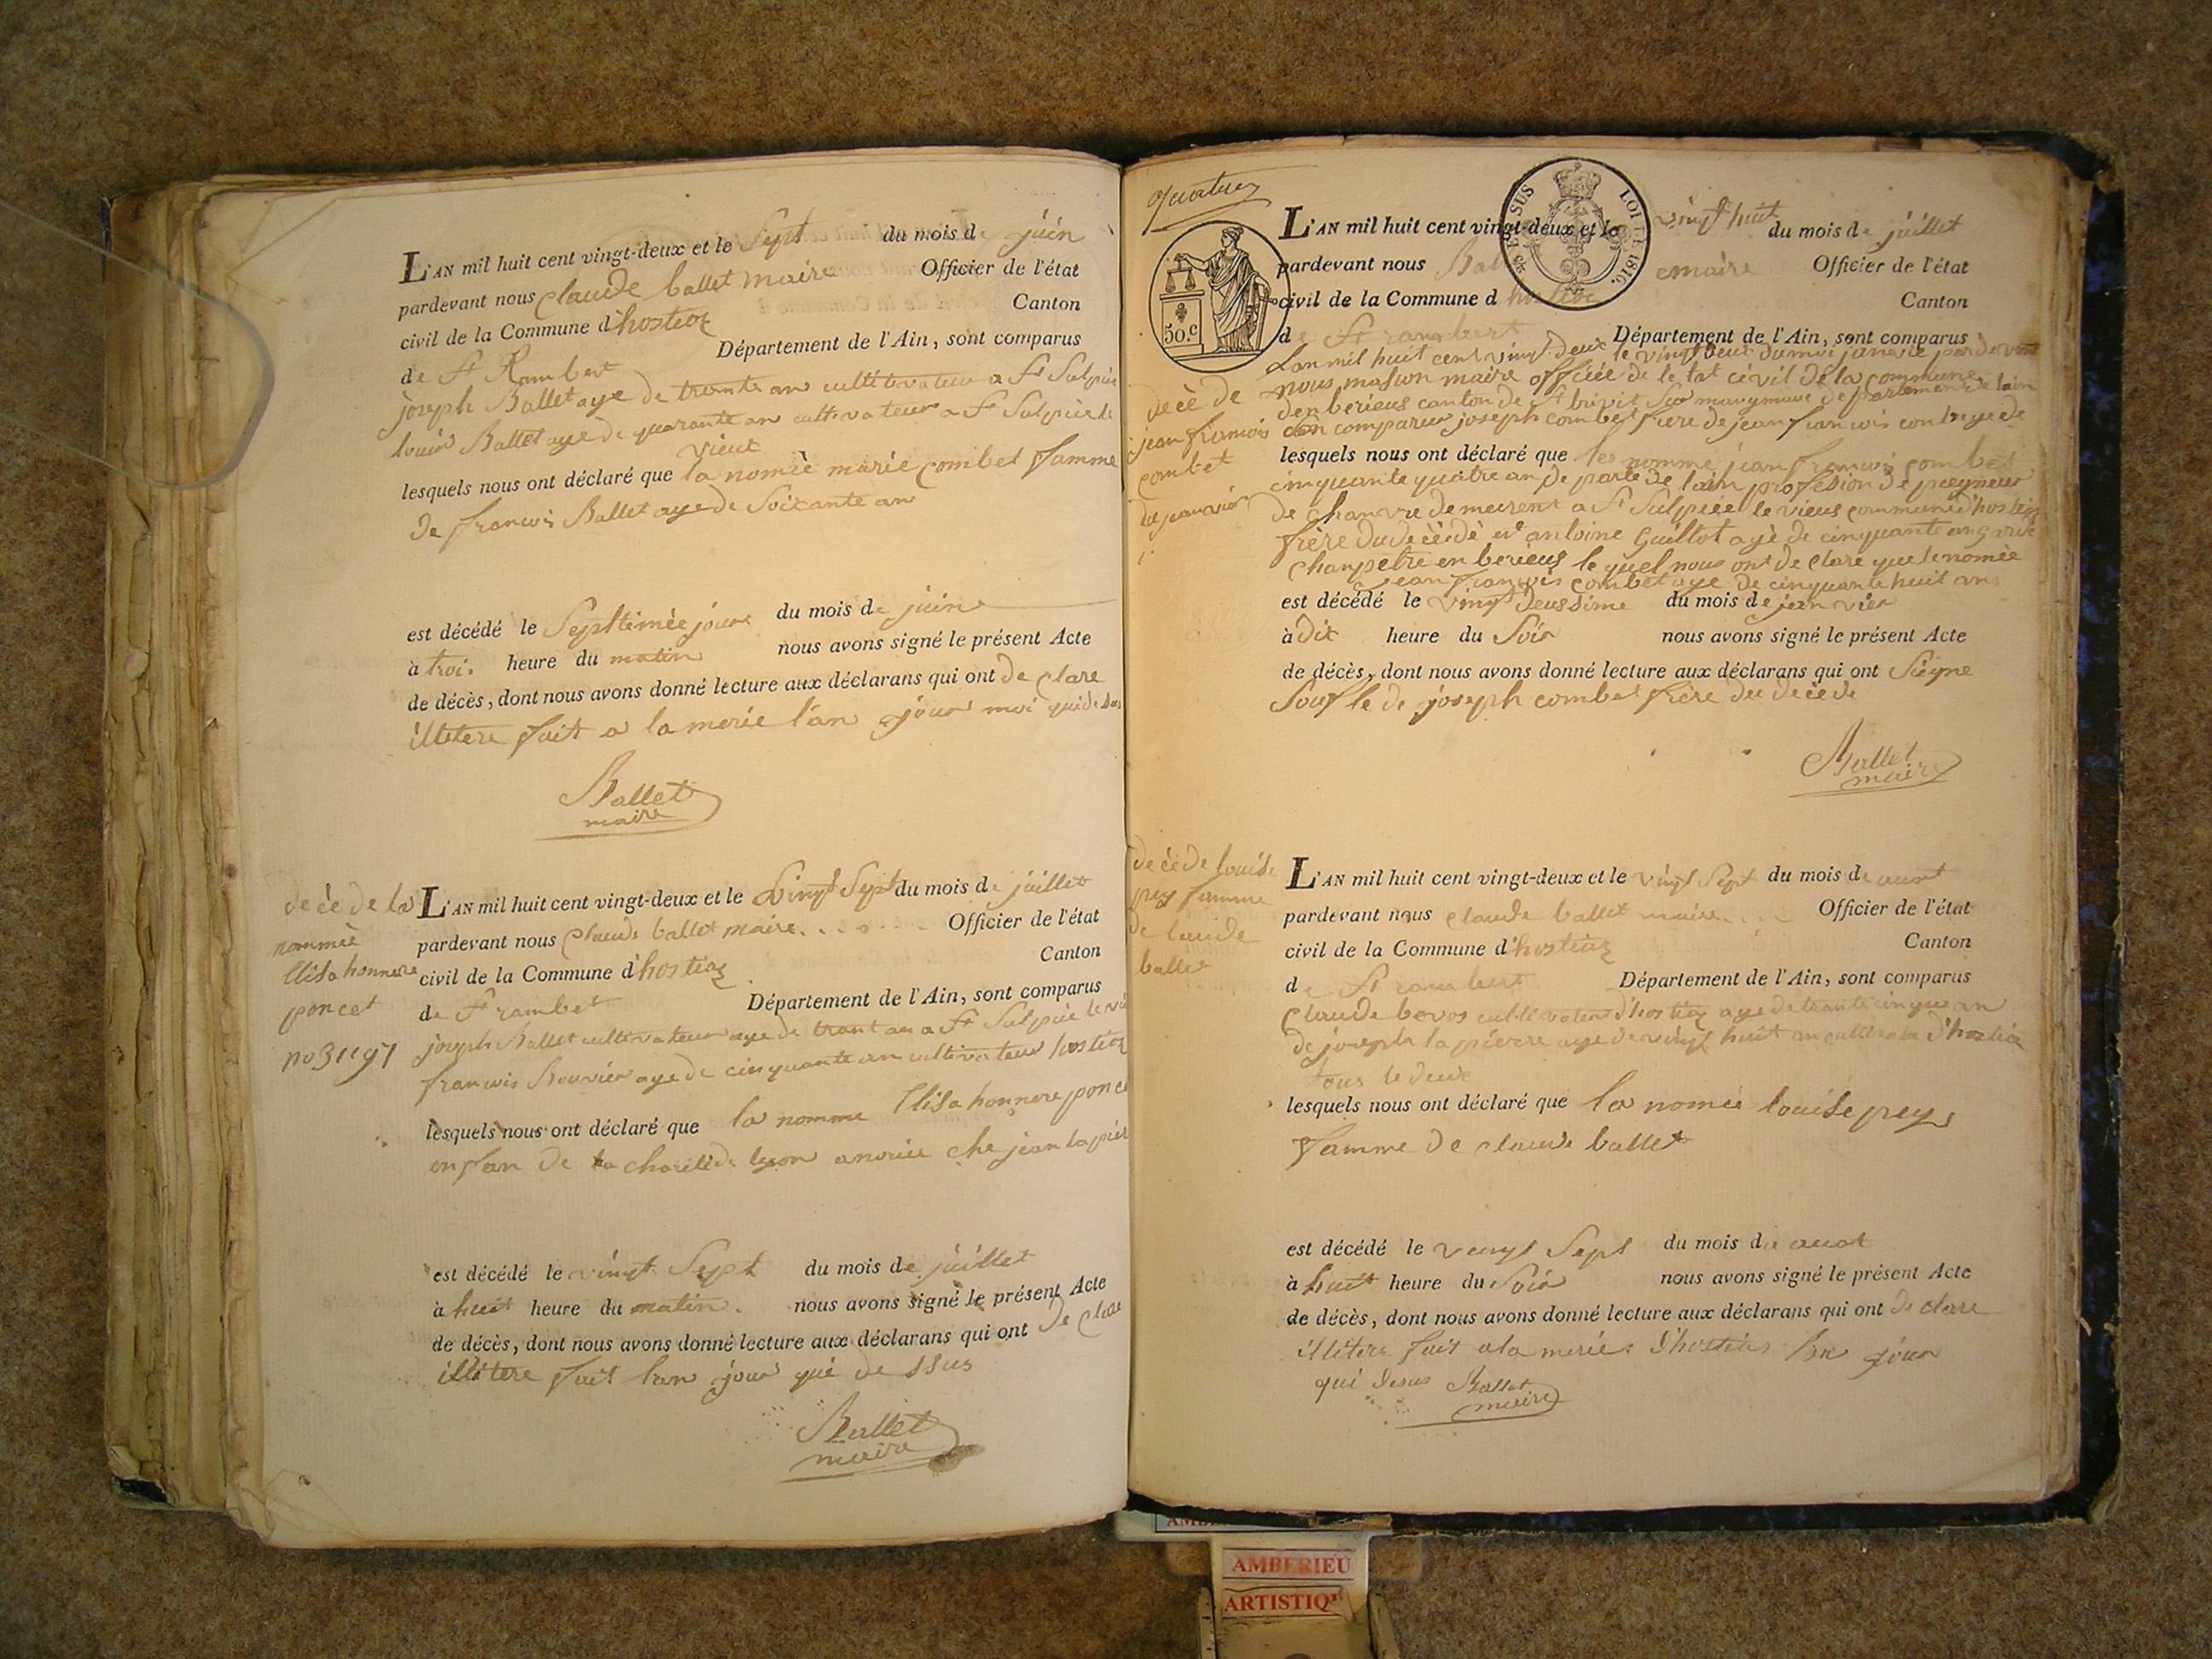 L'AN mil huit cent vingt-deux et le Sept du mois de juin
pardevant nous claude ballet maire Officier de l'état
civil de la Commune d'hostiaz Canton
de St Rambert Département de l'Ain, sont comparus
joseph Ballet aye de trante an cultitivateur a St Sulpice
louis Ballet aye de quarante an cultivateur a St Sulpice le
vieux
lesquels nous ont déclaré que la nomèe marie combet famme
de francois Ballet aye de Soicante an
est décédé le Septtimèe jour du mois de juin
à troi heure du matin nous avons signé le présent Acte
de décès, dont nous avons donné lecture aux déclarans qui ont de clare
illitere fait a la merie l'an jour moi qui de Sus
Ballet
maire
decè de la
nommèe
Elisa honnore
poncet
no 31197
L'AN mil huit cent vingt-deux et le Vingt Sept du mois de juillet
pardevant nous claude ballet maire Officier de l'état
civil de la Commune d'hostiaz Canton
de St rambet Département de l'Ain, sont comparus
joseph Ballet cultivateur aye de trant an a St Sulpice le vi
francois Bouvier aye de cinquante an cultivateur hostiaz
lesquels nous ont déclaré que la nomme Elisa honnore ponce
enfan de la charité de lyon che jean lapier
est décédé le vingt Sept du mois de juillet
à huit heure du matin. nous avons signé le présent Acte
de décès, dont nous avons donné lecture aux déclarans qui ont de clare
illitere fait l'an jour qui de ssus
Ballet
maire
SUS LOI DE 1816.
50.c
L'AN mil huit cent vingt-deux et le vingt huit du mois de juillet
pardevant nous Bal maire Officier de l'état
civil de la Commune d hostiaz Canton
de St rambert Département de l'Ain, sont comparus
decè de
jean francois
combet
L'an mil huit cent vingt deux le vingt deux du moi janvie par devant
nous maire de le tat civil de la commune
canton de departement de lain
comparu joseph combet frere de jean francois combet aye de
lesquels nous ont déclaré que le nommè jean francois combet
cinquante quatre an de parte de lain profesion de peygneur
de chanvre demeurent a St Sulpice le vieus commune d'hostiaz
frère du decèdè et antoine Guillot ayè de cinquante an
chanpetre en berieus le quel nous ont de clare que le nomèe
jean francois combet aye de cinquante huit an
est décédé le vingt deussime du mois de jeanvier
à dix heure du Soir nous avons signé le présent Acte
de décès, dont nous avons donné lecture aux déclarans qui ont Signe
Souf le de joseph combet frère du decède
Ballet
maire
decè de louise
pey famme
de claude
ballet
L'AN mil huit cent vingt-deux et le vingt Sept du mois de auot
pardevant nous claude ballet maire Officier de l'état
civil de la Commune d'hostiaz Canton
de St rambert Département de l'Ain, sont comparus
claude bovos cultivateur d'hostiaz aye de trante cinque an
de joseph lapierre aye de vingt huit an cultivateur d'hostiaz
tous le deux
lesquels nous ont déclaré que la nomèe louise pey
famme de claude ballet
est décédé le vengt Sept du mois de auot
à huit heure du Soir nous avons signé le présent Acte
de décès, dont nous avons donné lecture aux déclarans qui ont de clare
illitere fait a la merie d'hostiaz l'an jour
qui desus Ballet
maire
AMBERIEU
ARTISTIQ